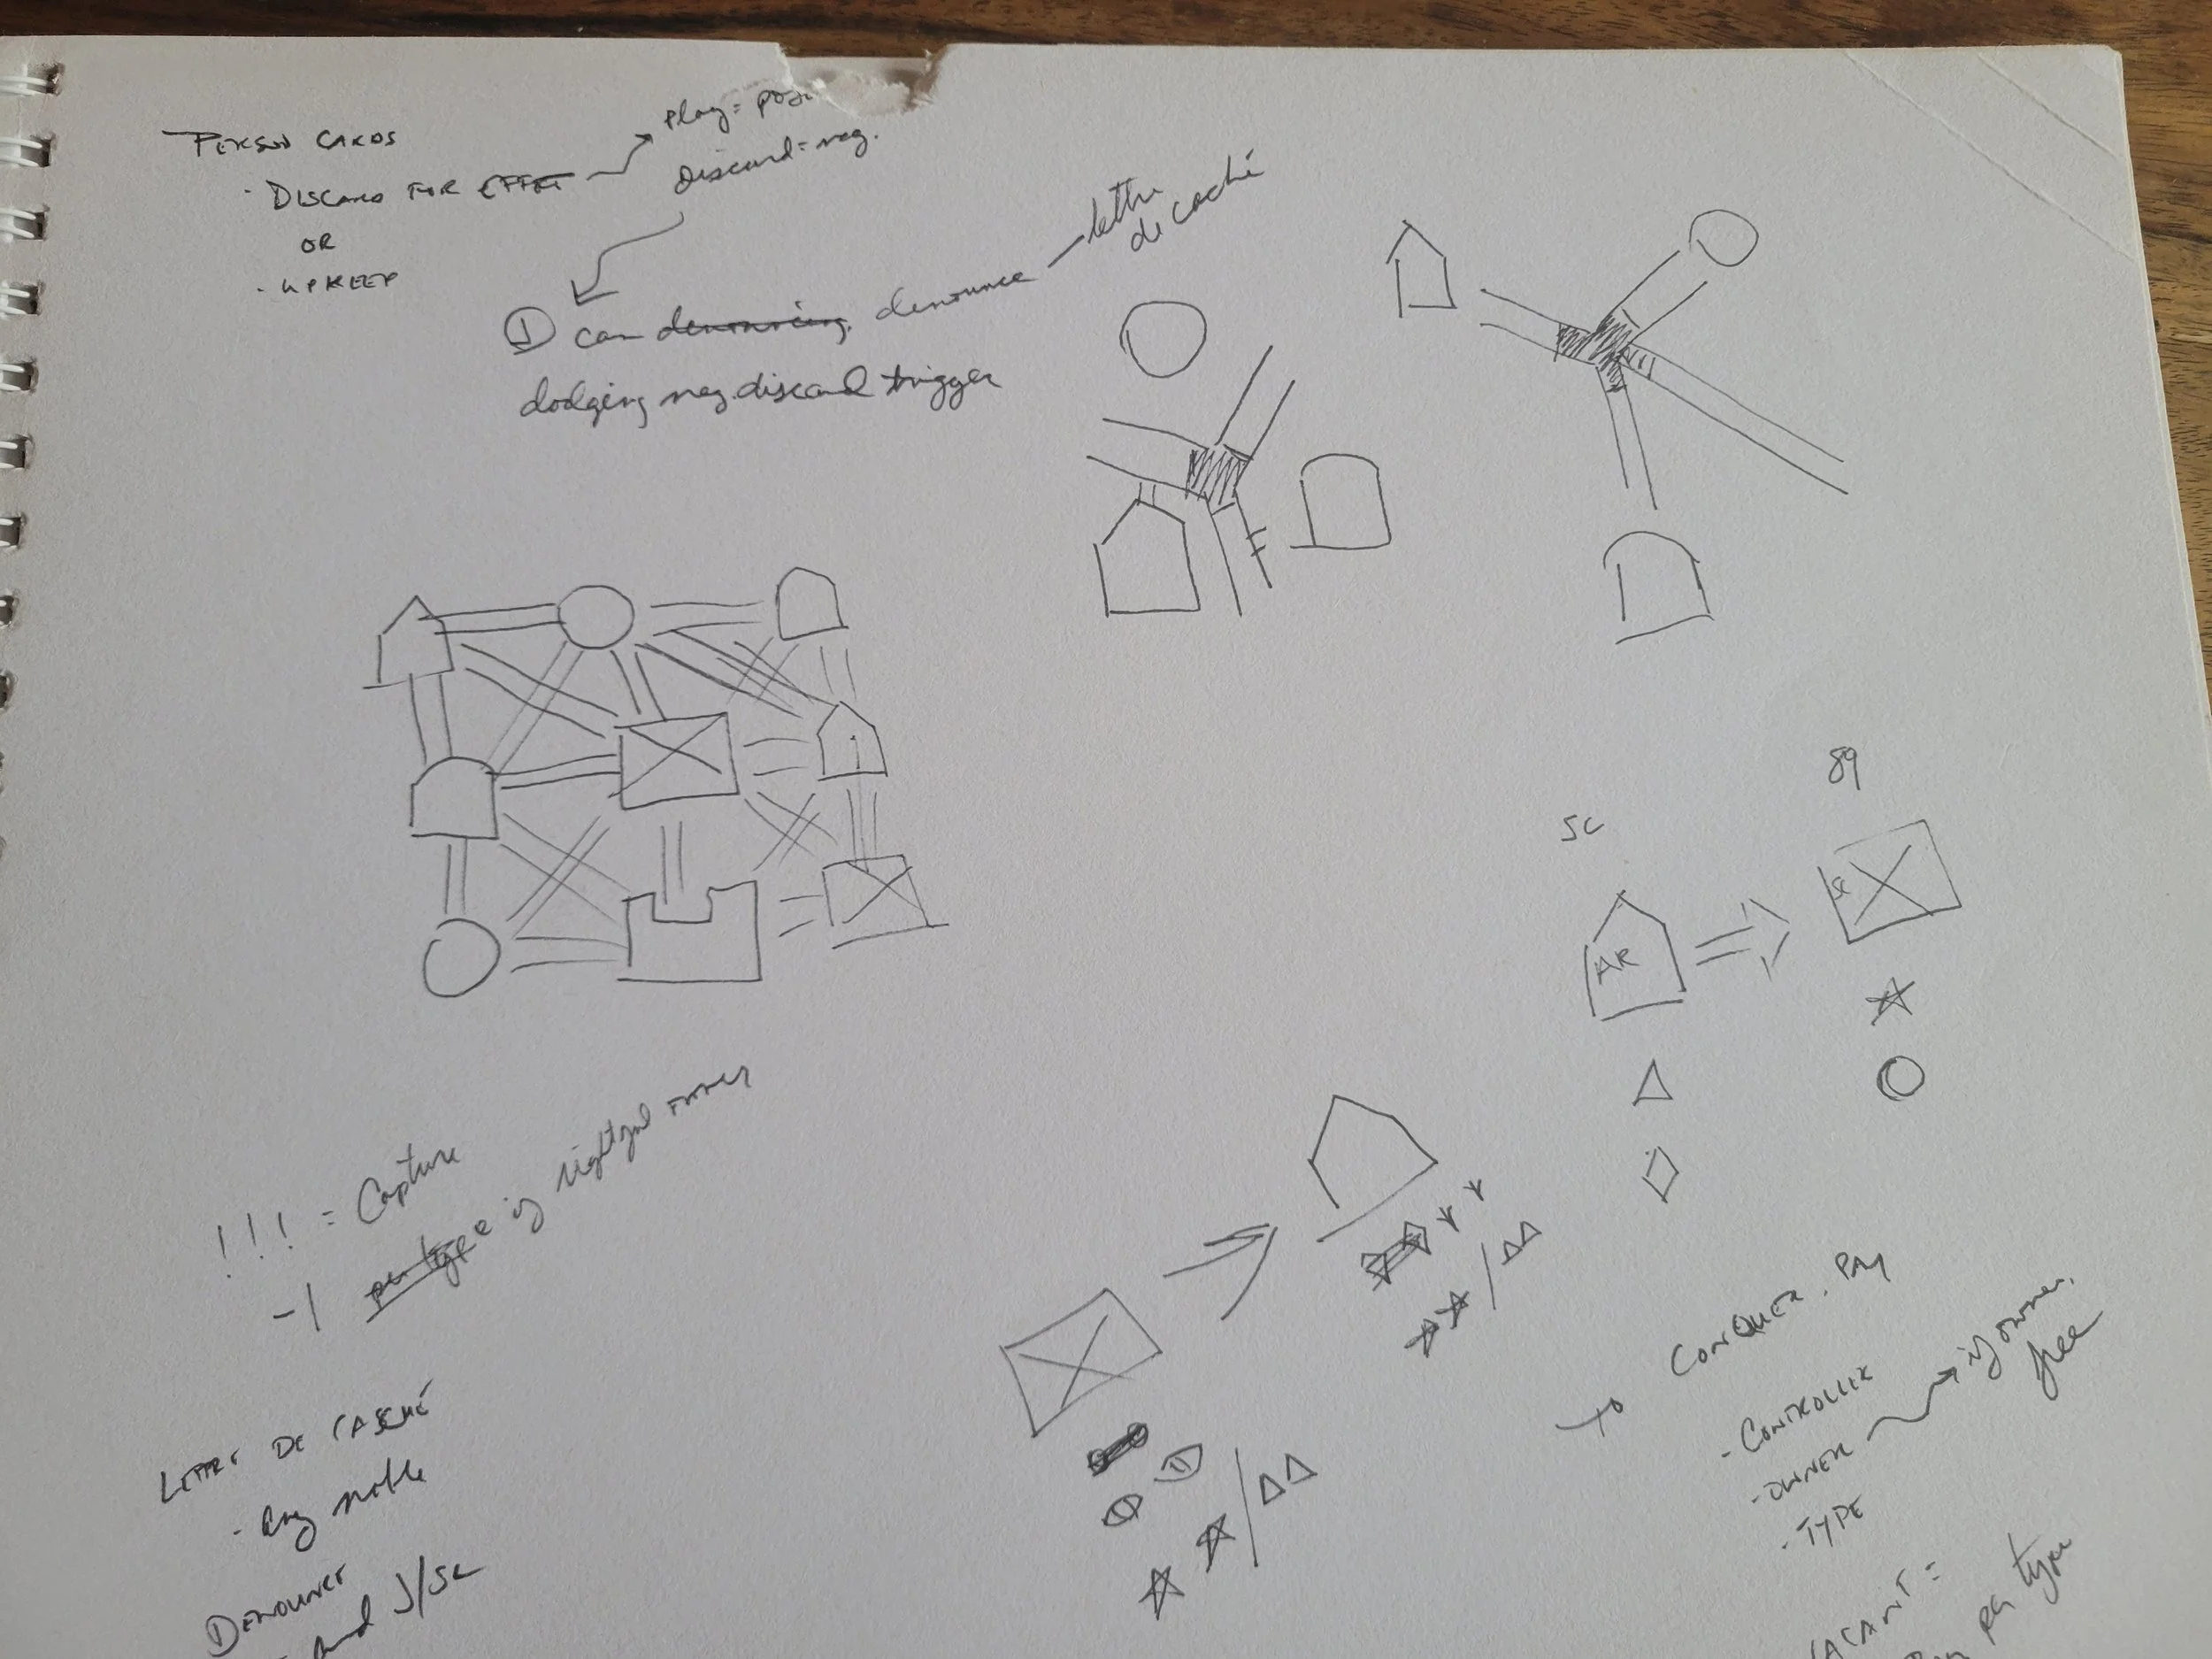 PERSON CARDS
· DISCARD FOR EFFECT
OR
· UPKEEP
play = posi
discard = neg.
① can denouncing, denounce
dodging neg. discard trigger
lettre
de caché
89
SC
SC
AR
!!! = Capture
-1 per type if rightful owner
LETTRE DE CASCHÉ
· Any noble
DENOUNCE
and J/SC
TO CONQUER, PAY
- CONTROLLER
- OWNER
· TYPE
if owner,
free
VACANT =
per type